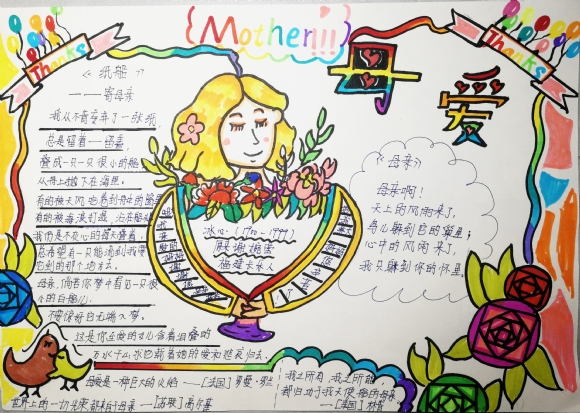 {Mother!!!}
Thanks
Thanks
母爱
《纸船》
——寄母亲
我从不肯妄弃了一张纸,
总是留着——留着,
叠成一只一只很小的船
从舟上抛下在海里。
有的被天风吹卷到舟中的窗里
有的被海浪打湿,沾在船头
我仍是不灰心的每天叠着,
总希望有一只能流到我要
它到的那个地方去。
母亲,倘若你梦中看见一只很
小的白船儿
不要惊讶它无端入梦。
这是你至爱的女儿含着泪叠的
万水千山,求它载着她的爱和悲哀归去。
母爱是一种巨大的火焰 ——[法国]罗曼·罗兰
世界上的一切光荣都来自母亲 ——[苏联]高尔基
冰心 (1900-1999)
原名谢婉莹
福建长乐人
《母亲》
母亲啊!
天上的风雨来了,
鸟儿躲到它的巢里;
心中的风雨来了,
我只躲到你的怀里。
我之所有,我之所能,
都归功于我天使般的母亲
——[美国]林肯